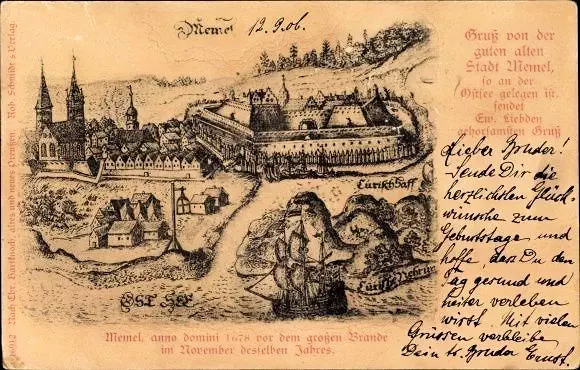 Memel
12.9.06.
Gruß von der
guten alten
Stadt Memel,
so an der
Ostsee gelegen ist.
sendet
Ew. Liebden
gehorsamsten Gruß
Lieber Bruder!
Sende Dir die
herzlichsten Glück-
wünsche zum
Geburtstage und
hoffe, dass Du den
Tag gesund und
heiter verleben
wirst. Mit vielen
Grüssen verbleibe
Dein tr. Bruder Ernst.
Curisch Haff
Curisch Nehrun
OST SEE
Memel, anno domini 1678 vor dem großen Brande
im November desselben Jahres.
Nach Ch. Hartknoch: altes und neues Preußen Rob. Schmidt's Verlag.